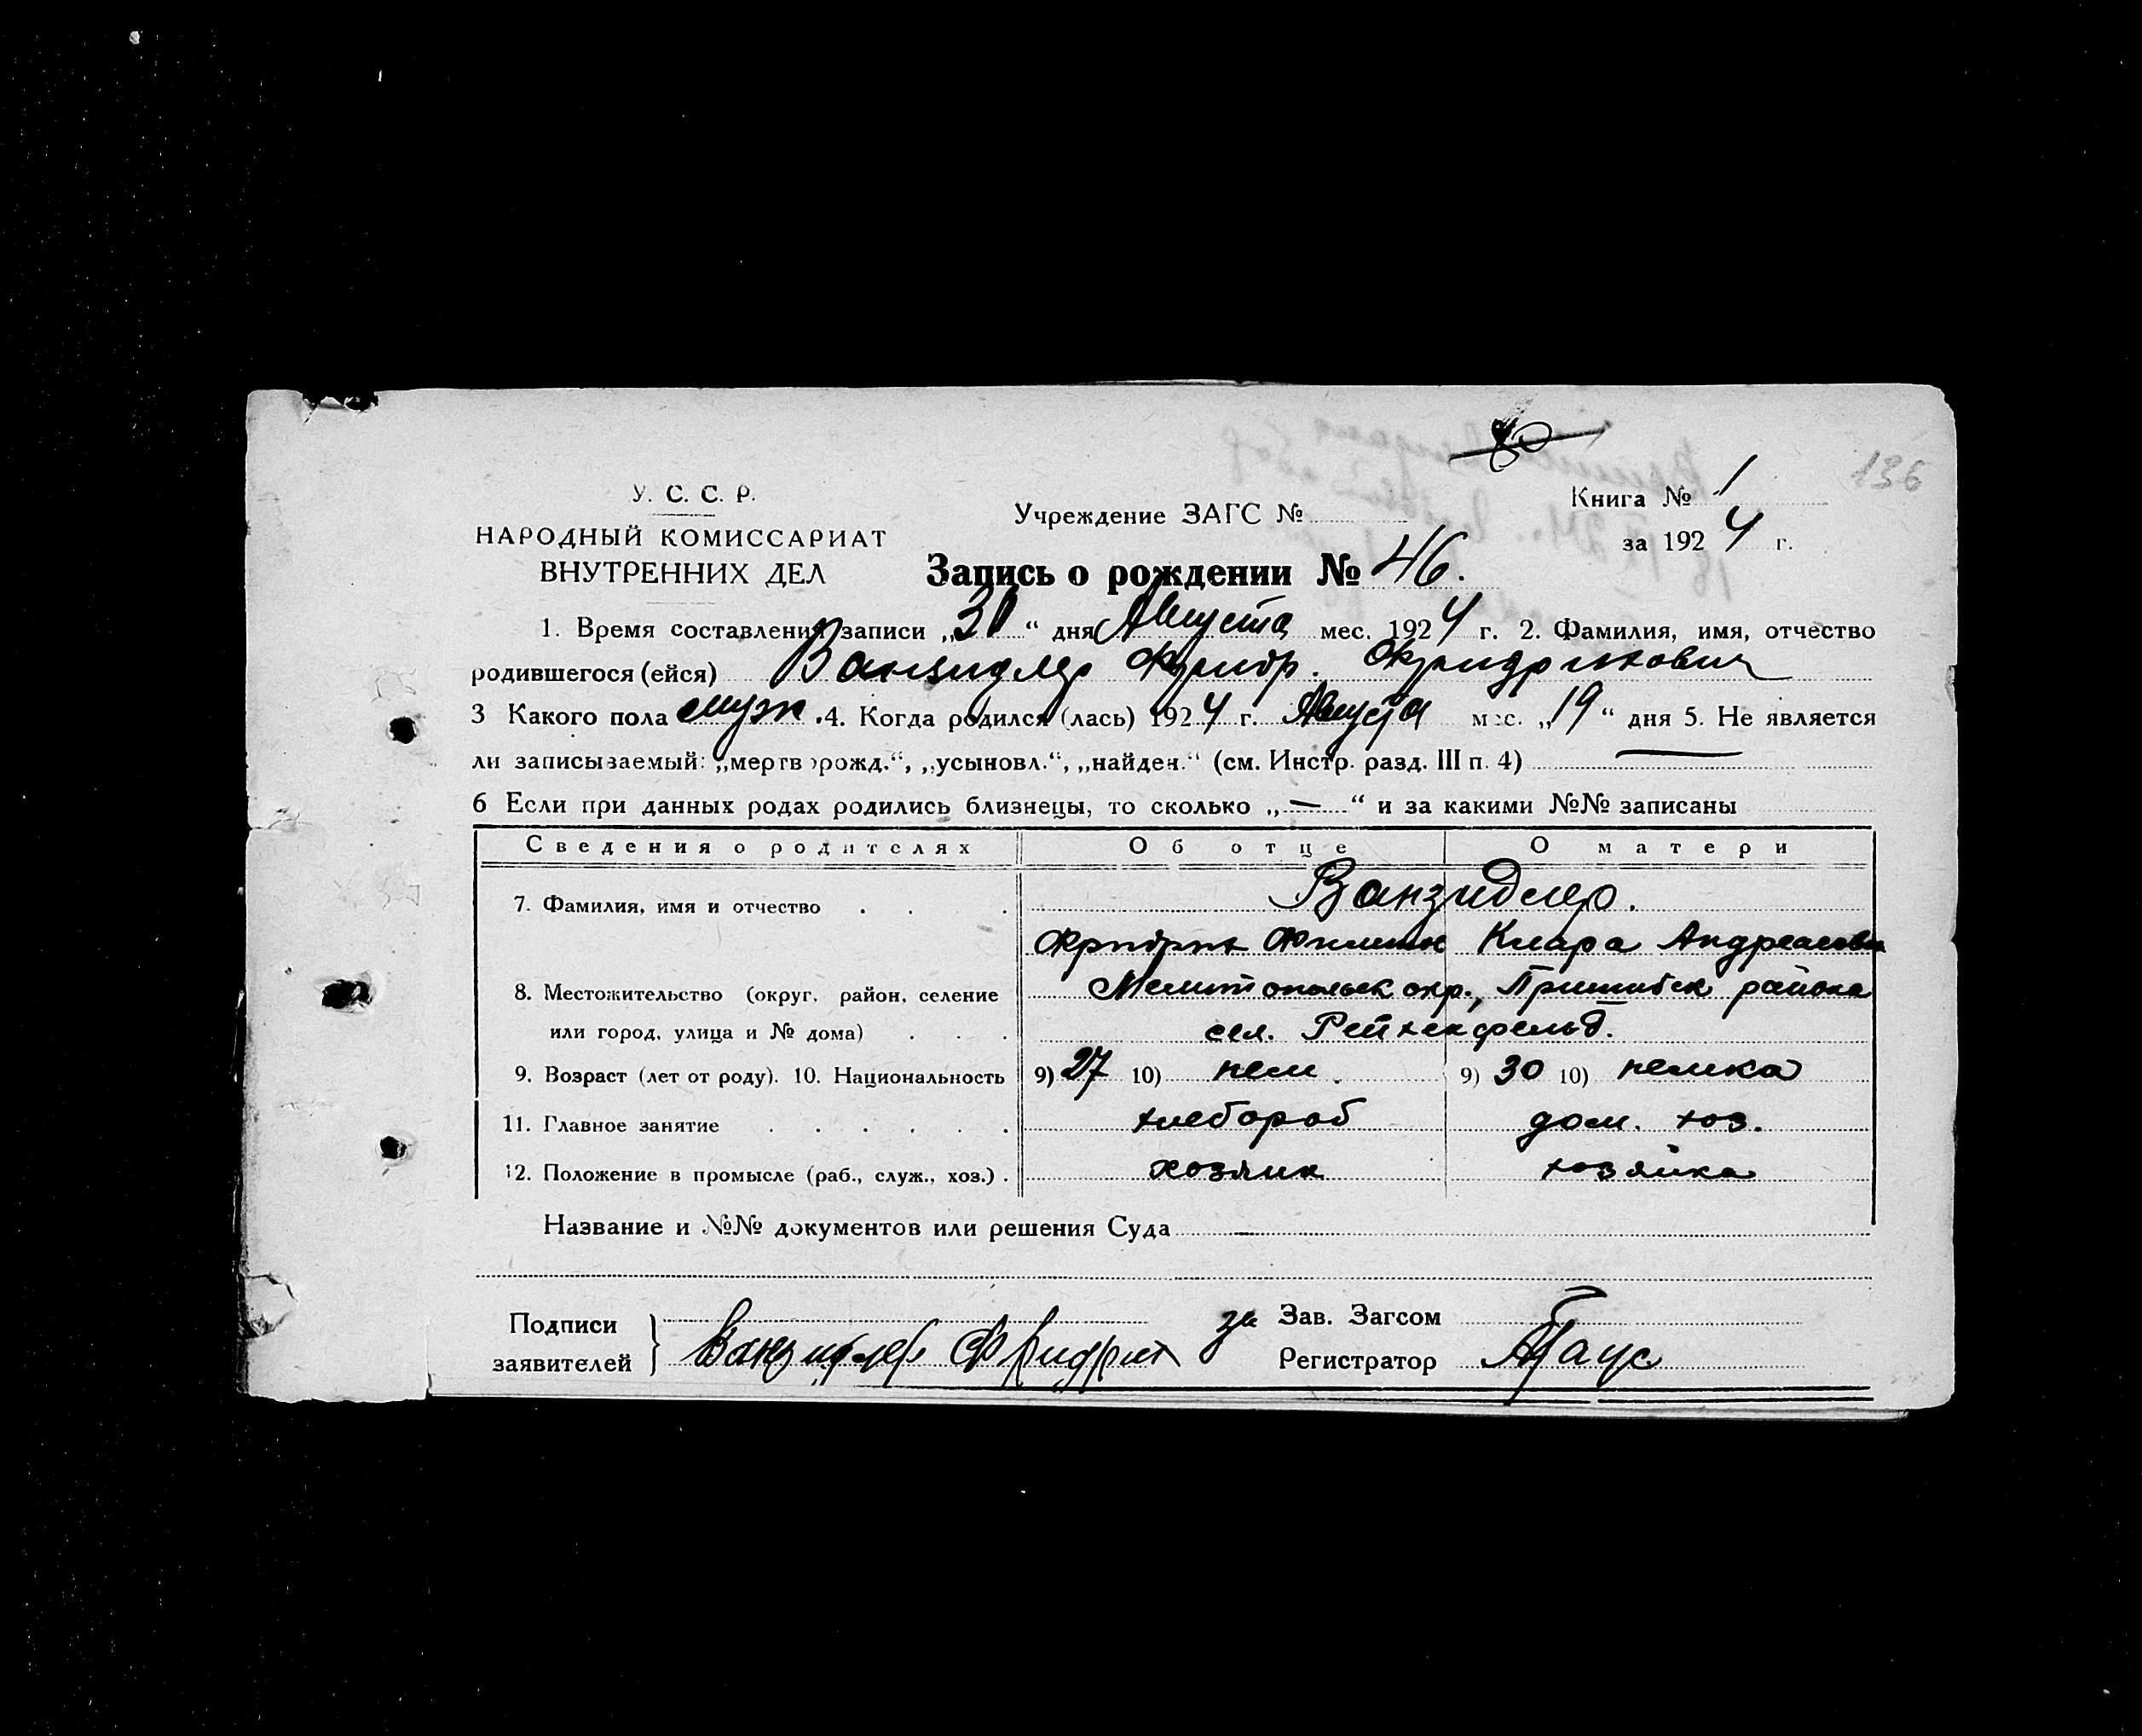 136
У. С. С. Р.
НАРОДНЫЙ КОМИССАРИАТ
ВНУТРЕННИХ ДЕЛ
Учреждение ЗАГС №
Книга № 1
за 1924 г.
Запись о рождении № 46.
1. Время составления записи „30“ дня Августа мес. 1924 г. 2. Фамилия, имя, отчество
родившегося (ейся) Ванзидлер Фридр. Фридрихович
3 Какого пола муж. 4. Когда родился (лась) 1924 г. Августа мес. „19“ дня 5. Не является
ли записываемый: „мертворожд.“, „усыновл.“, „найден.“ (см. Инстр. разд. III п. 4) —
6 Если при данных родах родились близнецы, то сколько „—“ и за какими №№ записаны
Сведения о родителях Об отце О матери
7. Фамилия, имя и отчество Ванзидлер.
Фридрих Филип Клара Андреасовна
8. Местожительство (округ, район, селение Мелитопольск окр., Пришибск района
или город, улица и № дома) сел. Рейхенфельд.
9. Возраст (лет от роду). 10. Национальность 9) 27 10) нем. 9) 30 10) немка
11. Главное занятие хлебороб дом. хоз.
12. Положение в промысле (раб., служ., хоз.) хозяин хозяйка
Название и №№ документов или решения Суда —
Подписи
заявителей } Ванзидлер Фридрих
за Зав. Загсом
Регистратор